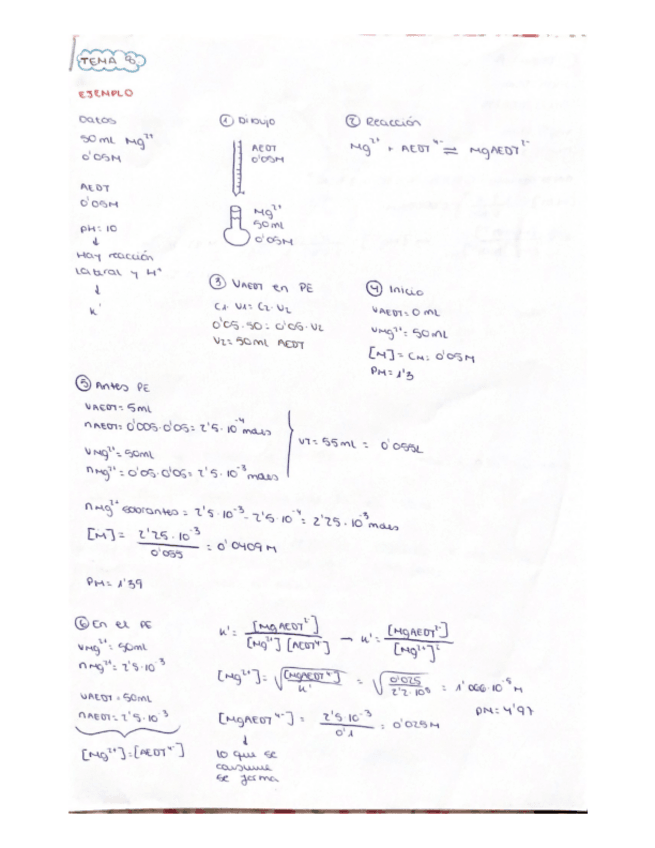 TEMA 8
EJEMPLO
Datos
50 mL Mg²⁺
0'05M
AEDT
0'05M
pH: 10
↓
Hay reacción
lateral y H⁺
↓
K'
① Dibujo
AEDT
0'05M
Mg²⁺
50mL
0'05M
② Reacción
Mg²⁺ + AEDT⁴⁻ ⇌ MgAEDT²⁻
③ VAEDT en PE
C1·V1 = C2·V2
0'05·50 = 0'05·V2
V2 = 50mL AEDT
④ Inicio
VAEDT = 0 mL
VMg²⁺ = 50mL
[M] = CM = 0'05M
PM = 1'3
⑤ Antes PE
VAEDT = 5mL
nAEDT = 0'005·0'05 = 2'5·10⁻⁴ moles
VMg²⁺ = 50mL
nMg²⁺ = 0'05·0'05 = 2'5·10⁻³ moles
VT = 55mL = 0'055L
nMg²⁺ sobrantes = 2'5·10⁻³ - 2'5·10⁻⁴ = 2'25·10⁻³ moles
[M] = 2'25·10⁻³ / 0'055 = 0'0409 M
PM = 1'39
⑥ En el PE
VMg²⁺ = 50mL
nMg²⁺ = 2'5·10⁻³
VAEDT = 50mL
nAEDT = 2'5·10⁻³
[Mg²⁺] = [AEDT⁴⁻]
K' = [MgAEDT²⁻] / [Mg²⁺][AEDT⁴⁻] → K' = [MgAEDT²⁻] / [Mg²⁺]²
[Mg²⁺] = √([MgAEDT⁴⁻] / K') = √(0'025 / 2'2·10⁸) = 1'066·10⁻⁵ M
PM = 4'97
[MgAEDT⁴⁻] = 2'5·10⁻³ / 0'1 = 0'025M
↓
lo que se
consume
se forma